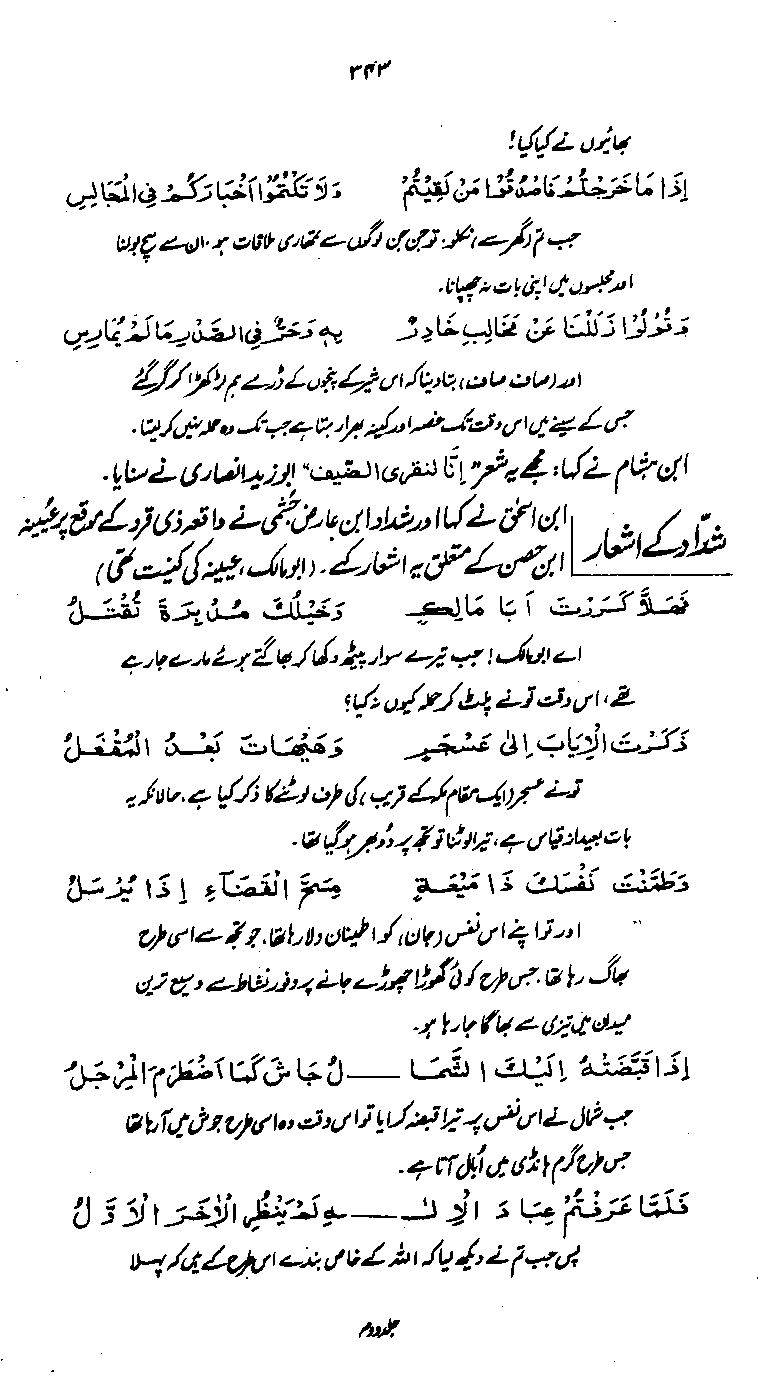 ۳۴۳
بھائیوں نے کیا کیا!
إِذَا مَا خَرَجْتُمْ فَاصْدُقُوا مَنْ لَقِيتُمْ وَلَا تَكْتُمُوا أَخْبَارَكُمْ فِي الْمَجَالِسِ
جب تم (گھر سے) نکلو، تو جن جن لوگوں سے تمھاری ملاقات ہو، ان سے سچ بولنا
اور مجلسوں میں اپنی بات نہ چھپانا۔
وَقُولُوا زَلَلْنَا عَنْ مَخَالِبِ خَادِرٍ بِهِ وَحَرٌ فِي الصَّدْرِ مَا لَمْ يُمَارِسِ
اور (صاف صاف) بتا دینا کہ اس شیر کے پنجوں کے ڈر سے ہم لڑکھڑا کر گر گئے
جس کے سینے میں اس وقت تک غصہ اور کینہ بھرا رہتا ہے جب تک وہ حملہ نہیں کر لیتا۔
ابن ہشام نے کہا: مجھے یہ شعر "إِنَّا لنقری الضّیف" ابو زید انصاری نے سنایا۔
شدّاد کے اشعار
ابن اسحٰق نے کہا اور شداد ابن عارض جُشَمی نے واقعہ ذی قرد کے موقع پر عُیَینہ
ابن حصن کے متعلق یہ اشعار کہے۔ (ابو مالک، عیینہ کی کنیت تھی)
فَهَلَّا كَرَرْتَ أَبَا مَالِكٍ وَخَيْلُكَ مُدْبِرَةٌ تُقْتَلُ
اے ابو مالک! جب تیرے سوار پیٹھ دکھا کر بھاگتے ہوئے مارے جا رہے
تھے، اس وقت تو نے پلٹ کر حملہ کیوں نہ کیا؟
ذَكَرْتَ الْإِيَابَ إِلَى عَسْجَرٍ وَهَيْهَاتَ بَعْدُ الْمُقْفَلُ
تو نے عسجر (ایک مقام مکہ کے قریب) کی طرف لوٹنے کا ذکر کیا ہے، حالانکہ یہ
بات بعید از قیاس ہے، تیرا لوٹنا تو تجھ پر دُوبھر ہو گیا تھا۔
وَطَمَّنْتَ نَفْسَكَ ذَا مَيْعَةٍ مِسَحَّ الْفَضَاءِ إِذَا يُرْسَلُ
اور تو اپنے اس نفس (جان) کو اطمینان دلا رہا تھا، جو تجھ سے اسی طرح
بھاگ رہا تھا، جس طرح کوئی گھوڑا چھوڑے جانے پر وفور نشاط سے وسیع ترین
میدان میں تیزی سے بھاگا جا رہا ہو۔
إِذَا قَبَّضَتْهُ إِلَيْكَ الشَّمَا ـــ لُ جَاشَ كَمَا اضْطَرَمَ الْمِرْجَلُ
جب شمال نے اس نفس پر تیرا قبضہ کرایا تو اس وقت وہ اسی طرح جوش میں آ رہا تھا
جس طرح گرم ہانڈی میں اُبال آتا ہے۔
فَلَمَّا عَرَفْتُمْ عِبَادَ الْإِلٰـ ـــ ـهِ لَمْ يَنْظُرِ الْآخَرَ الْأَوَّلُ
پس جب تم نے دیکھ لیا کہ اللہ کے خاص بندے اس طرح کے ہیں کہ پہلا
جلد دوم